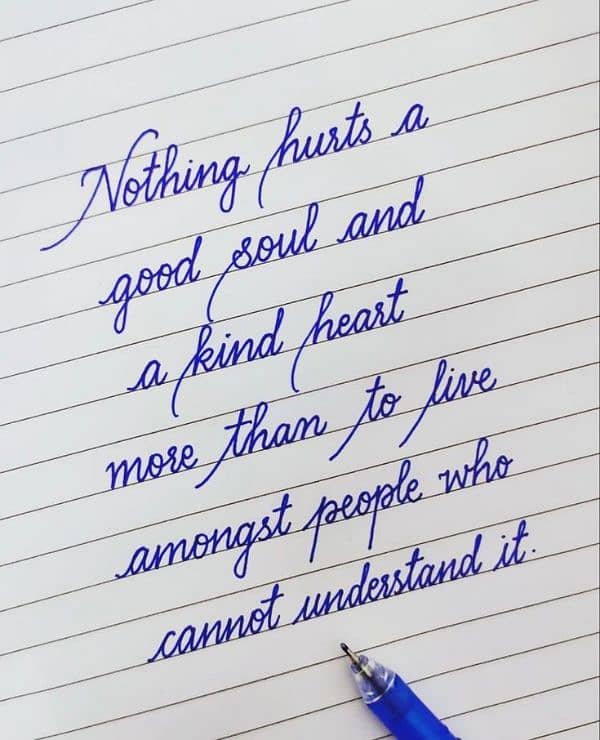 Nothing hurts a
good soul and
a kind heart
more than to live
amongst people who
cannot understand it.